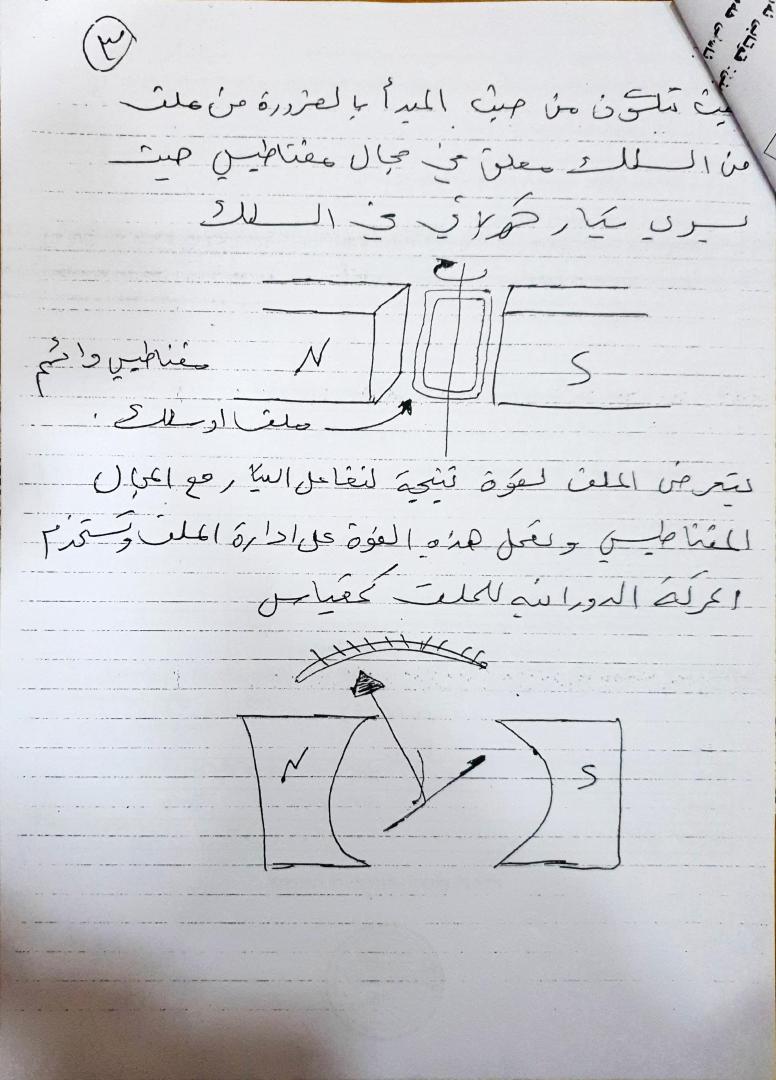 ٣
حيث تتكون من حيث المبدأ بالضرورة من ملف
من السلك معلق في مجال مغناطيسي حيث
يسري تيار كهربائي في السلك
N
S
مغناطيس دائم
ملف او سلك .
يتعرض الملف لقوة نتيجة لتفاعل التيار مع المجال
المغناطيسي وتعمل هذه القوة على ادارة الملف وتستخدم
الحركة الدورانية للملف كمقياس
N
S